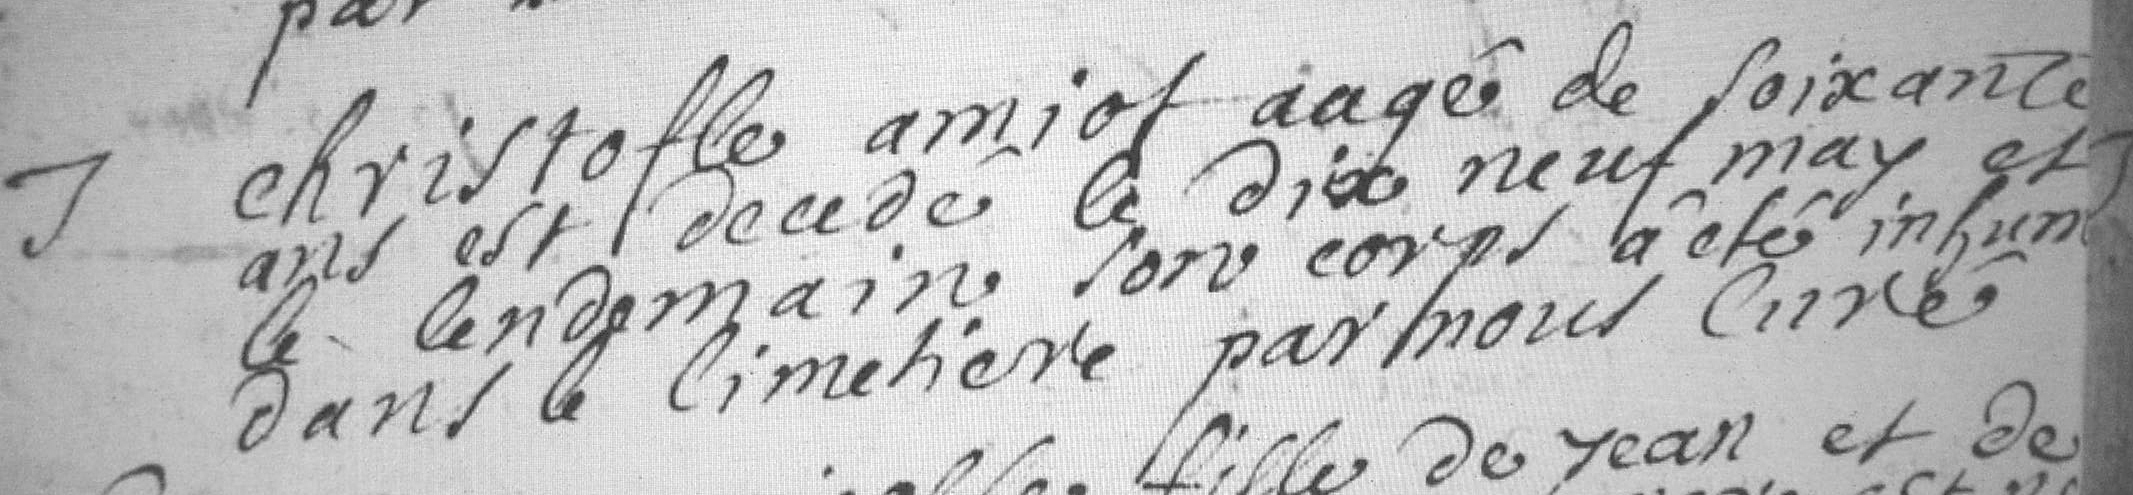 par
christofle amiot aagé de soixante
ans est decedé le dix neuf may et
le lendemain son corps a été inhum
dans le cimetiere par nous curé
fille de jean et de